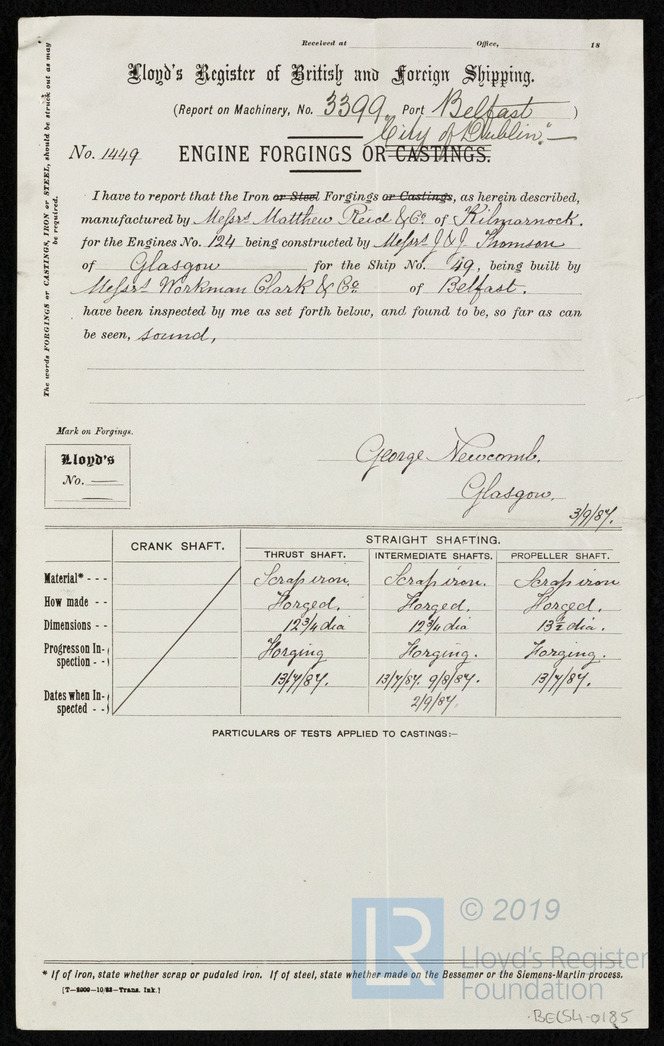 Received at Office, 18
Lloyd's Register of British and Foreign Shipping.
(Report on Machinery, No. 3399, Port Belfast )
"City of Dublin."
No. 1449 ENGINE FORGINGS OR CASTINGS.
I have to report that the Iron or Steel Forgings or Castings, as herein described,
manufactured by Messrs Matthew Reid & Co. of Kilmarnock.
for the Engines No. 124 being constructed by Messrs J & J Thomson
of Glasgow for the Ship No. 49, being built by
Messrs Workman Clark & Co of Belfast.
have been inspected by me as set forth below, and found to be, so far as can
be seen, sound,
The words FORGINGS or CASTINGS, IRON or STEEL, should be struck out as may
be required.
Mark on Forgings.
Lloyd's
No.
George Newcomb.
Glasgow.
3/9/87.
CRANK SHAFT. STRAIGHT SHAFTING.
THRUST SHAFT. INTERMEDIATE SHAFTS. PROPELLER SHAFT.
Material* - - - Scrap iron. Scrap iron. Scrap iron
How made - - Forged. Forged. Forged.
Dimensions - - 12 3/4 dia 12 3/4 dia 13 1/2 dia.
Progress on In-
spection - - Forging Forging. Forging.
13/7/87. 13/7/87. 9/8/87. 13/7/87.
Dates when In-
spected - - 2/9/87
PARTICULARS OF TESTS APPLIED TO CASTINGS:—
* If of iron, state whether scrap or pudaled iron. If of steel, state whether made on the Bessemer or the Siemens-Martin process.
[T—2000—10/83—Trans. Ink.]
LR
© 2019
Lloyd's Register
Foundation
BEL54-0185